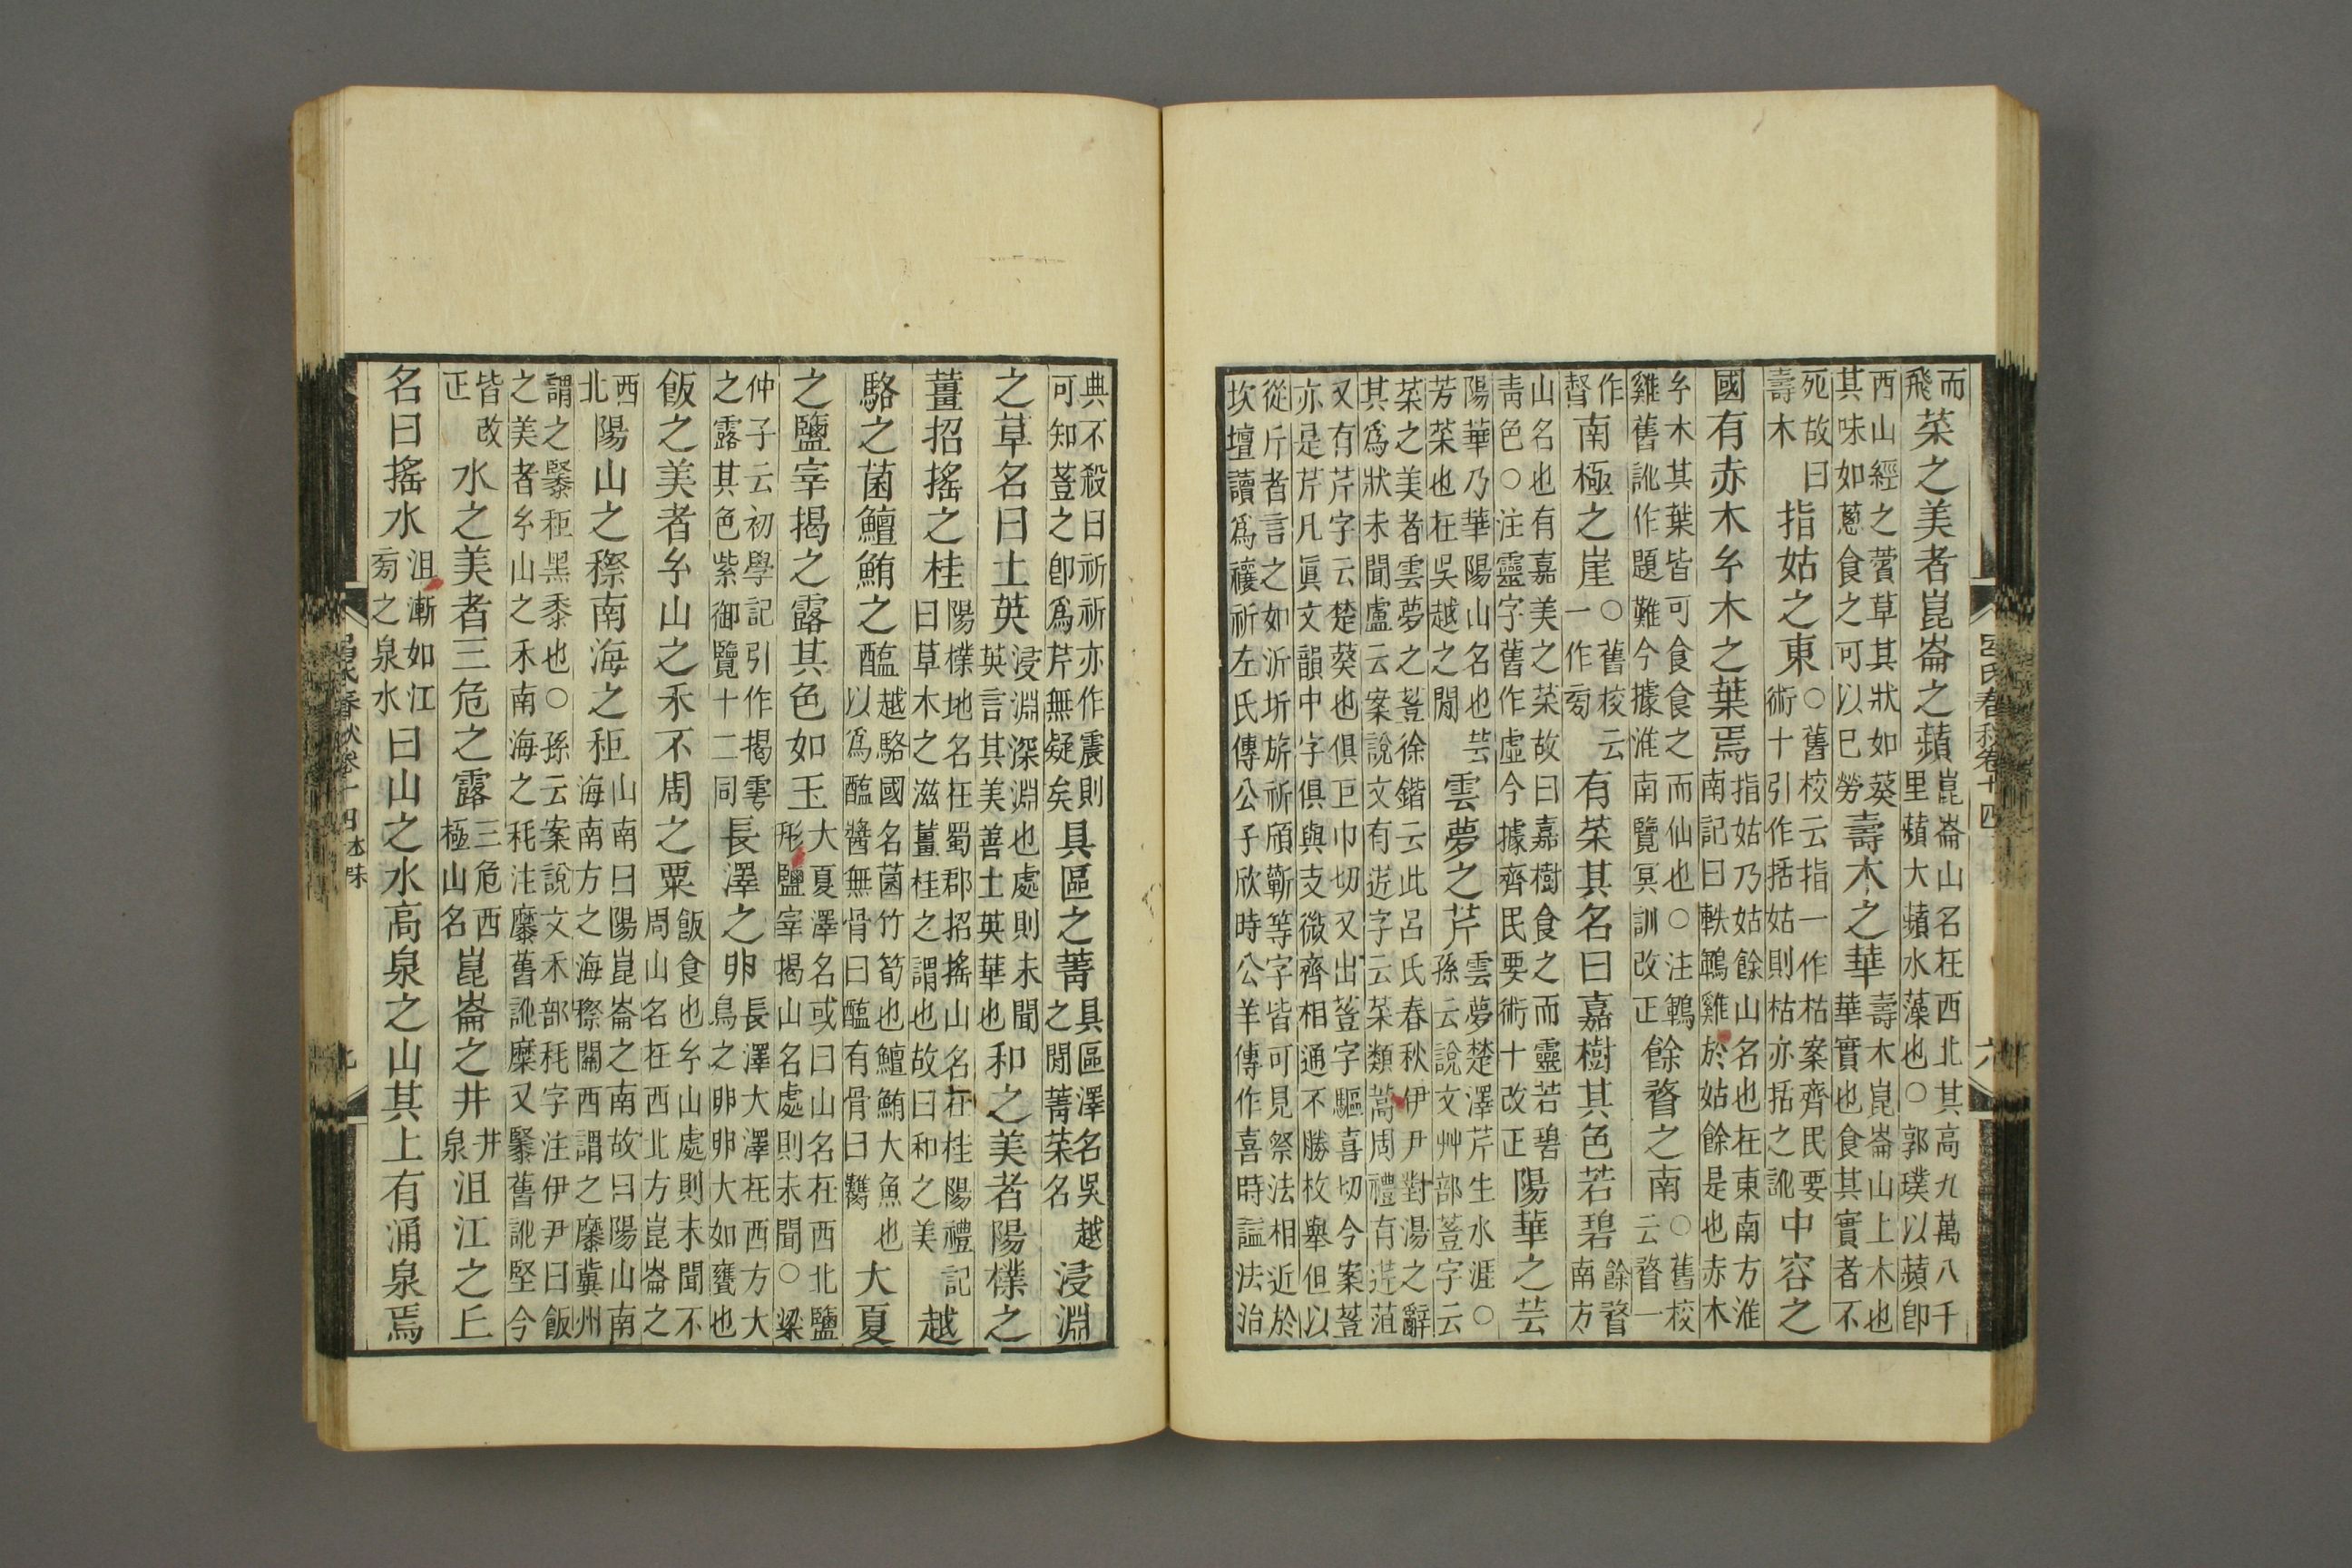 呂氏春秋卷十四
六
而飛菜之美者崑崙之蘋崑崙山名在西北其高九萬八千里蘋大蘋水藻也○郭璞以蘋卽
西山經之薲草其狀如葵其味如蔥食之可以已勞壽木之華壽木崑崙山上木也華實也食其實者不
死故曰壽木指姑之東○舊校云指一作枯案齊民要術十引作括姑則枯亦括之訛中容之
國有赤木幺木之葉焉指姑乃姑餘山名也在東南方淮南記曰軼鶤雞於姑餘是也赤木
幺木其葉皆可食食之而仙也○注鶤雞舊訛作題難今據淮南覽冥訓改正餘瞀之南○舊校云瞀一
作督南極之崖○舊校云一作旁有菜其名曰嘉樹其色若碧餘瞀南方
山名也有嘉美之菜故曰嘉樹食之而靈若碧青色○注靈字舊作虛今據齊民要術十改正陽華之芸
陽華乃華陽山名也芸芳菜也在吳越之閒雲夢之芹雲夢楚澤芹生水涯○孫云說文艸部䔇字云
菜之美者雲夢之䔇徐鍇云此呂氏春秋伊尹對湯之辭其爲狀未聞盧云案說文有䒗字云菜類蒿周禮有䒗菹
又有芹字云楚葵也俱巨巾切又出䔇字驅喜切今案䔇亦是芹凡眞文韻中字俱與支微齊相通不勝枚舉但以
從斤者言之如沂圻旂祈頎蘄等字皆可見祭法相近於坎壇讀爲禳祈左氏傳公子欣時公羊傳作喜時謚法治
典不殺曰祈祈亦作震則可知䔇之卽爲芹無疑矣具區之菁具區澤名吳越之閒菁菜名浸淵
之草名曰土英浸淵深淵也處則未聞英言其美善土英華也和之美者陽樸之
薑招搖之桂陽樸地名在蜀郡招搖山名在桂陽禮記曰草木之滋薑桂之謂也故曰和之美越
駱之菌鱣鮪之醢越駱國名菌竹筍也鱣鮪大魚也以爲醢醬無骨曰醢有骨曰臡大夏
之鹽宰揭之露其色如玉大夏澤名或曰山名在西北鹽形鹽宰揭山名處則未聞○梁
仲子云初學記引作揭雩之露其色紫御覽十二同長澤之卵長澤大澤在西方大鳥之卵卵大如甕也
飯之美者幺山之禾不周之粟飯食也幺山處則未聞不周山名在西北方崑崙之
西北陽山之穄南海之秬山南曰陽崑崙之南故曰陽山南海南方之海穄關西謂之䵚冀州
謂之䅽秬黑黍也○孫云案說文禾部秏字注伊尹曰飯之美者幺山之禾南海之秏注䵚舊訛糜又䅽舊訛堅今
皆改正水之美者三危之露三危西極山名崑崙之井井泉沮江之丘
名曰搖水沮漸如江旁之泉水曰山之水高泉之山其上有涌泉焉